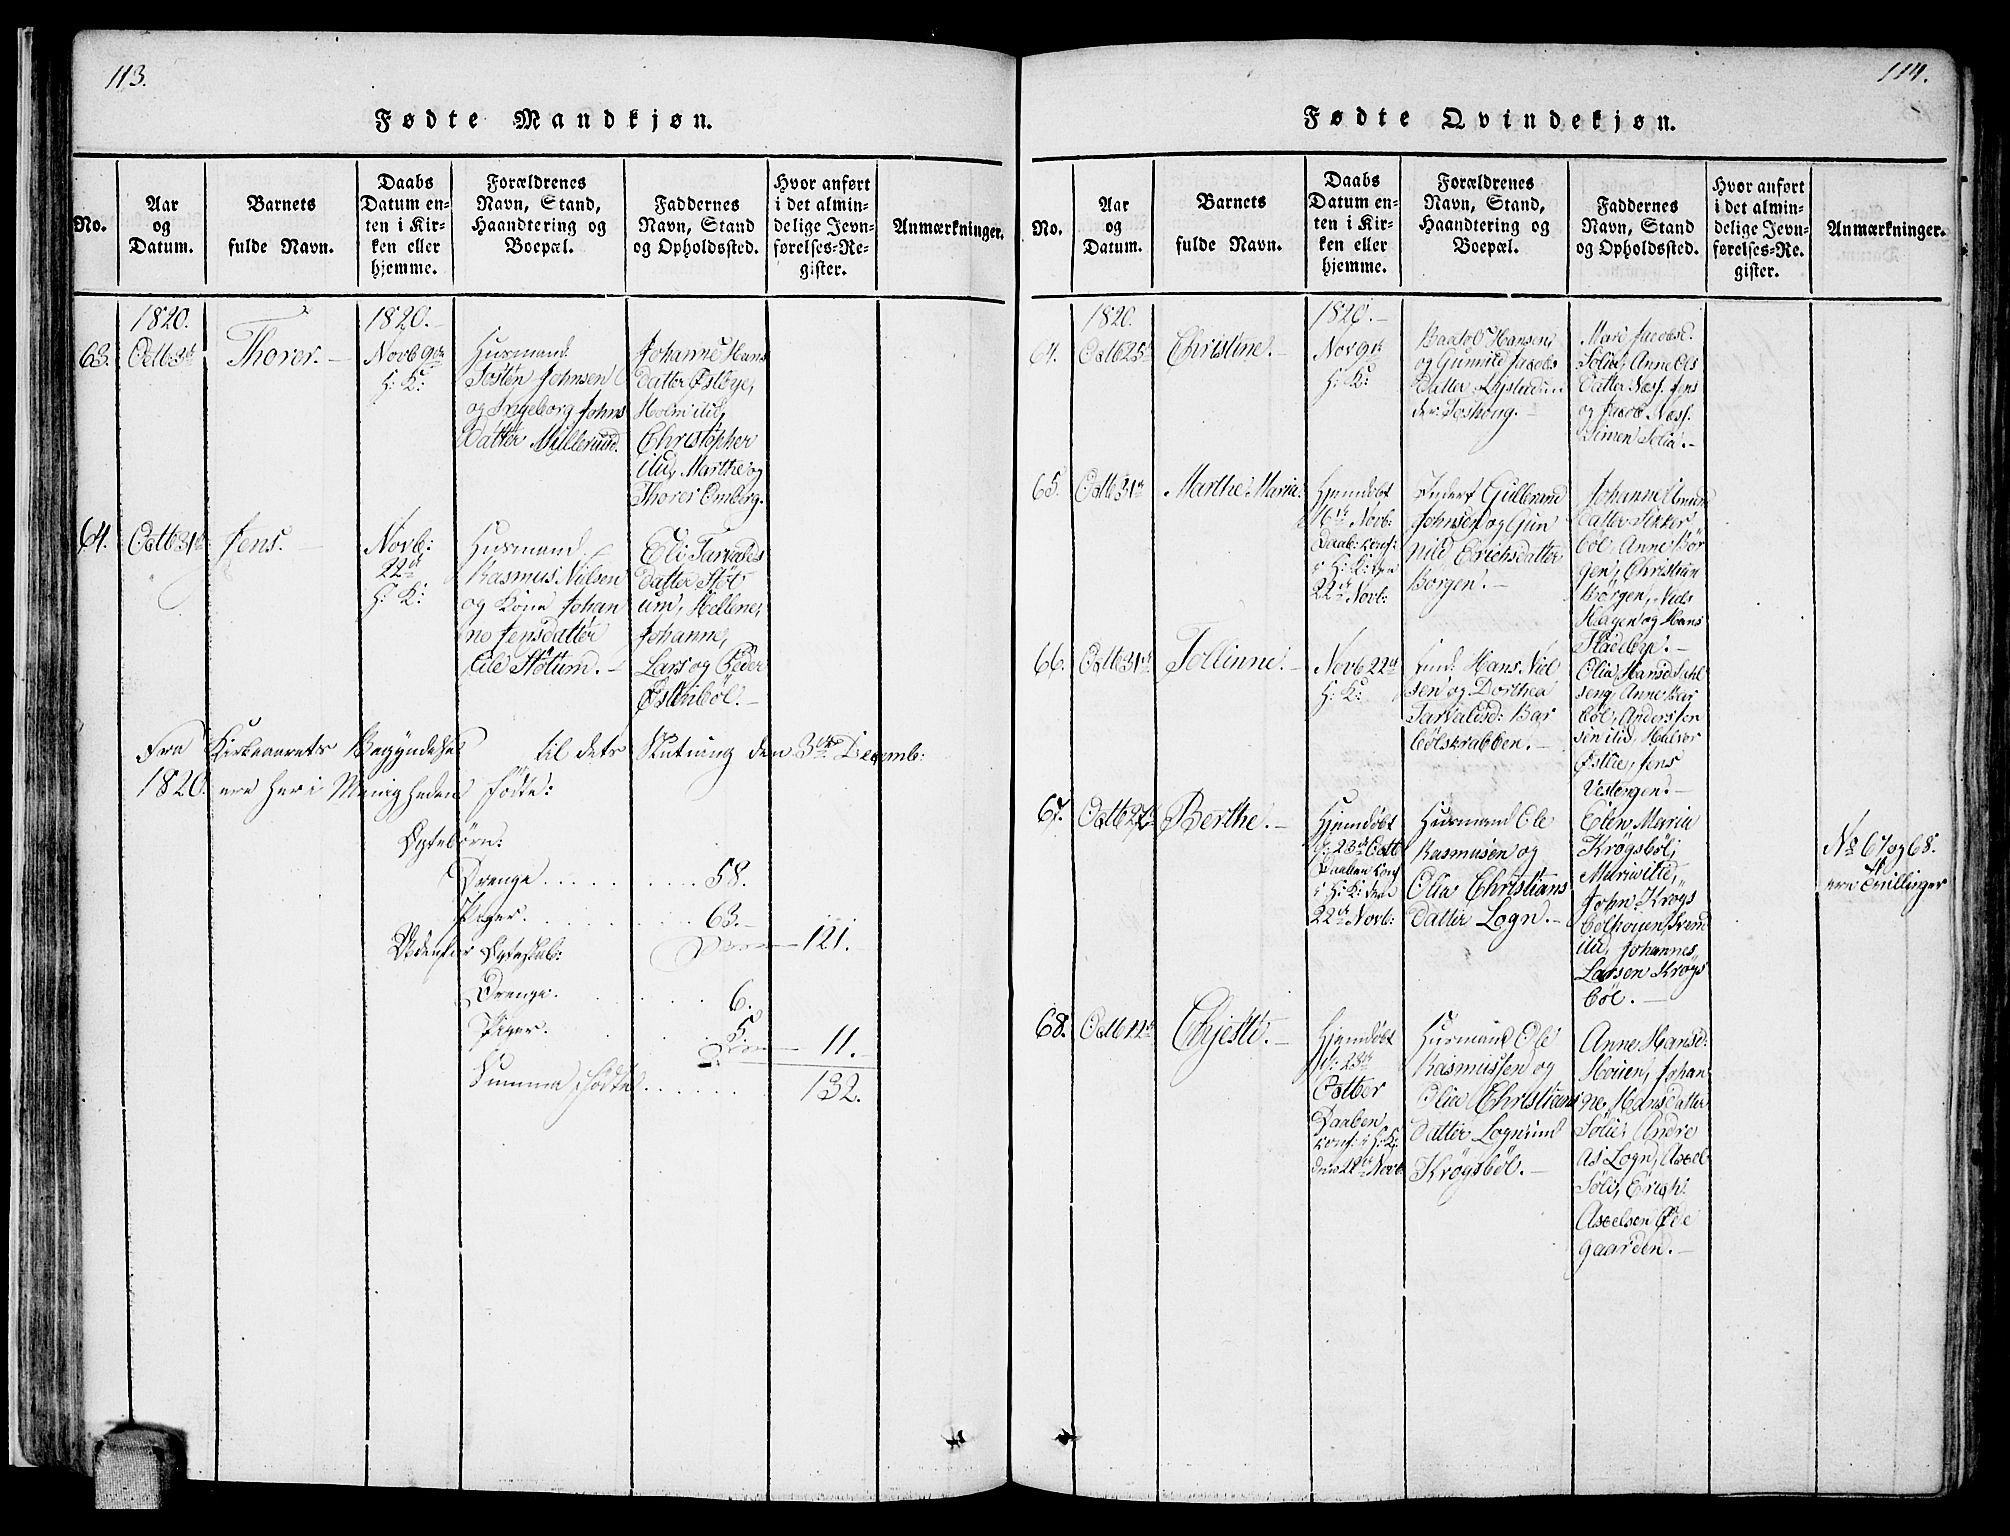 113.
Fødte Mandkjøn.
No.
Aar
og
Datum.
Barnets
fulde Navn.
Daabs
Datum en-
ten i Kir-
ken eller
hjemme.
Forældrenes
Navn, Stand,
Haandtering og
Boepæl.
Faddernes
Navn, Stand
og Opholdssted.
Hvor anført
i det almin-
delige Jevn-
førelses-Re-
gister.
Anmærkninger.
63.
1820.
Octb
Thorer.
1820.
Novb 9de
H: K:
Husmand
Josten Johnsen
og Ingeborg Johns
datter Millerud.
Johanne Hans
datter Østbye,
Holm ibid,
Christopher
ibid, Marthe og
Thorer Omberg.
64.
Octb 31te
Jens.
Novb:
22de
H: K:
Husmand
Rasmus Nielsen
og Kone Johan
ne Jensdatter
Eie Støtum.
Eli Tarvalds
datter Støt
um, Hellene,
Johanne,
Lars og Peder
Østenbøl.
Fra Kirkeaarets Begyndelse til dets Slutning den 3de Decemb:
1820 ere her i Menigheden fødte:
Ægtebørn:
Drenge 58.
Piger 63.
121.
Udenfor Ægteskab:
Drenge 6.
Piger. 5.
11.
Summa fødte 132.
114.
Fødte Qvindekjøn.
No.
Aar
og
Datum.
Barnets
fulde Navn.
Daabs
Datum en-
ten i Kir-
ken eller
hjemme.
Forældrenes
Navn, Stand,
Haandtering og
Boepæl.
Faddernes
Navn, Stand
og Opholdssted.
Hvor anført
i det almin-
delige Jevn-
førelses-Re-
gister.
Anmærkninger.
64.
1820.
Octb 25de
Christine.
1820.
Nov 9de
H: K:
Baarol Hansen
og Gunnild Jacobs
datter
Mari Jacobsd.
Solie, Anne Ols
datter Næss. Jens
og Jacob Næss.
Simen Solie.
65.
Octb 31te
Marthe Maria.
Hjemdøbt
Novb:
Daab: conf:
i H: K: den
22de Novb:
Inderst Gulbrand
Johnsen og Gun
nild Erichsdatter
Borgen.
Johanne Amund
datter
bøl, Anne Bør
gen, Christian
Børgen, Niels
Hagen og Hans
Stadeby.
66.
Octb 31te
Tollinne.
Novb 22de
H: K:
Hans Niel
sen og Dorthea
Tarvaldsd: Bar
bølskrabben.
Olia Hansd
seng, Anne Bar
bøl, Anders Jen
sen ibid, Halvor
Østlie, Jens
Vestengen.
67.
Octb 22de
Berthe.
Hjemdøbt
d: 23de Octb
Daaben conf
i H: K: den
22de Novb:
Husmand Ole
Rasmusen og
Olia Christians
datter Logn.
Elen Maria
Krogsbøl,
Maria ibid,
John Krogs
bølhoien, Svend
ibid, Johannes
Larsen Krogs
bøl.
No 67 og 68.
ere Tvillinger
68.
Octb 22de
Chjesti.
Hjemdøbt
d: 23de
Octber
Daaben
conf: i H: K:
den 22de Novb
Husmand Ole
Rasmussen og
Olia Christians
datter Logn und
Krogsbøl.
Anne Hansd:
Hoien, Johan
ne Hansdatter
Sølie, Andre
as Logn, Axel
Søli, Erich
Axelsen Øde
gaarden.